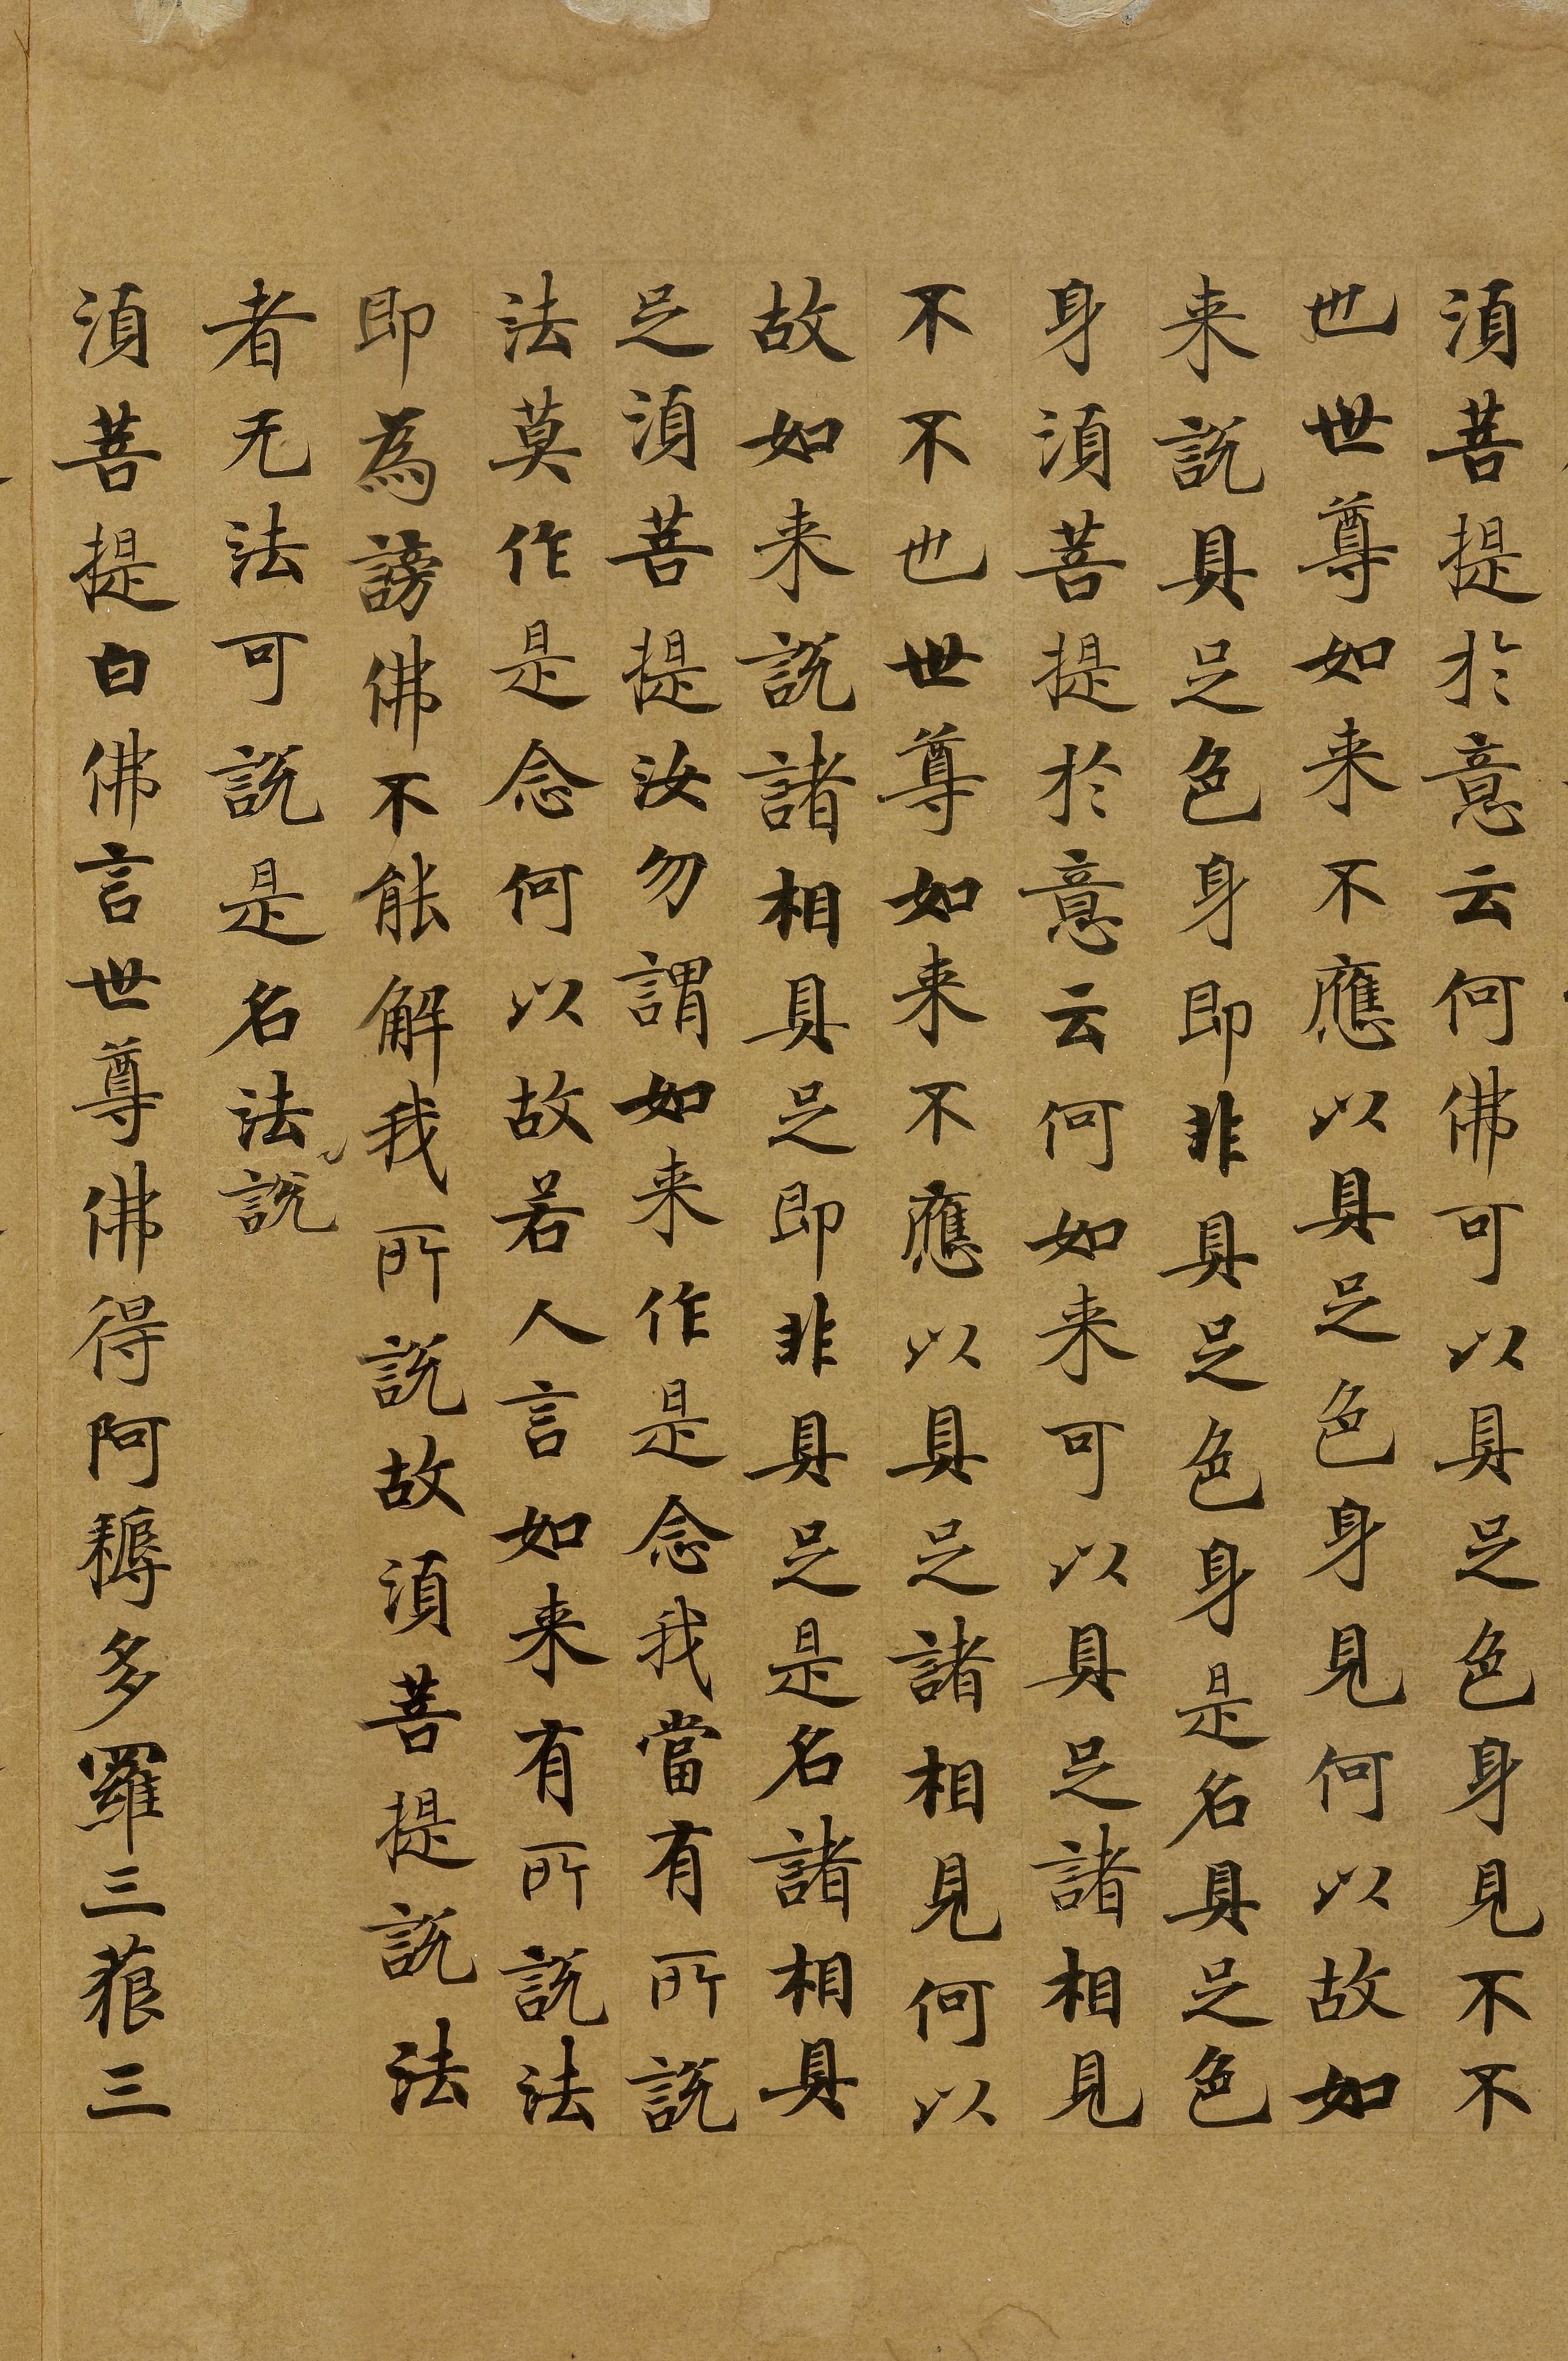 湏菩提於意云何佛可以具足色身見不不
也世尊如来不應以具足色身見何以故如
来説具足色身即非具足色身是名具足色
身湏菩提於意云何如来可以具足諸相見
不不也世尊如来不應以具足諸相見何以
故如来説諸相具足即非具足是名諸相具
足湏菩提汝勿謂如来作是念我當有所説
法莫作是念何以故若人言如来有所説法
即為謗佛不能解我所説故湏菩提説法
者无法可説是名法説
湏菩提白佛言世尊佛得阿耨多羅三藐三